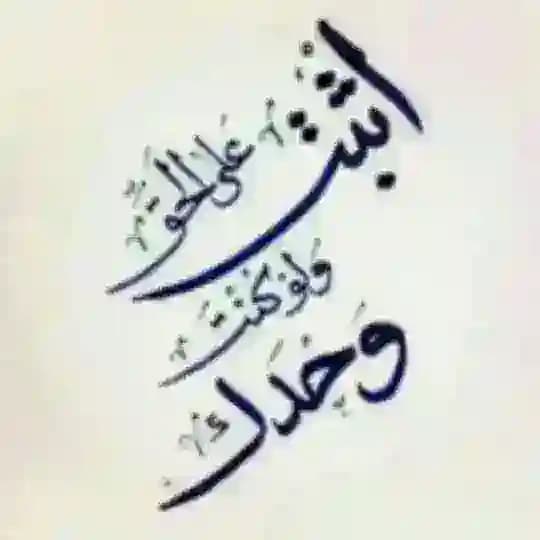 اثبت
على الحق
ولو كنت
وحدك